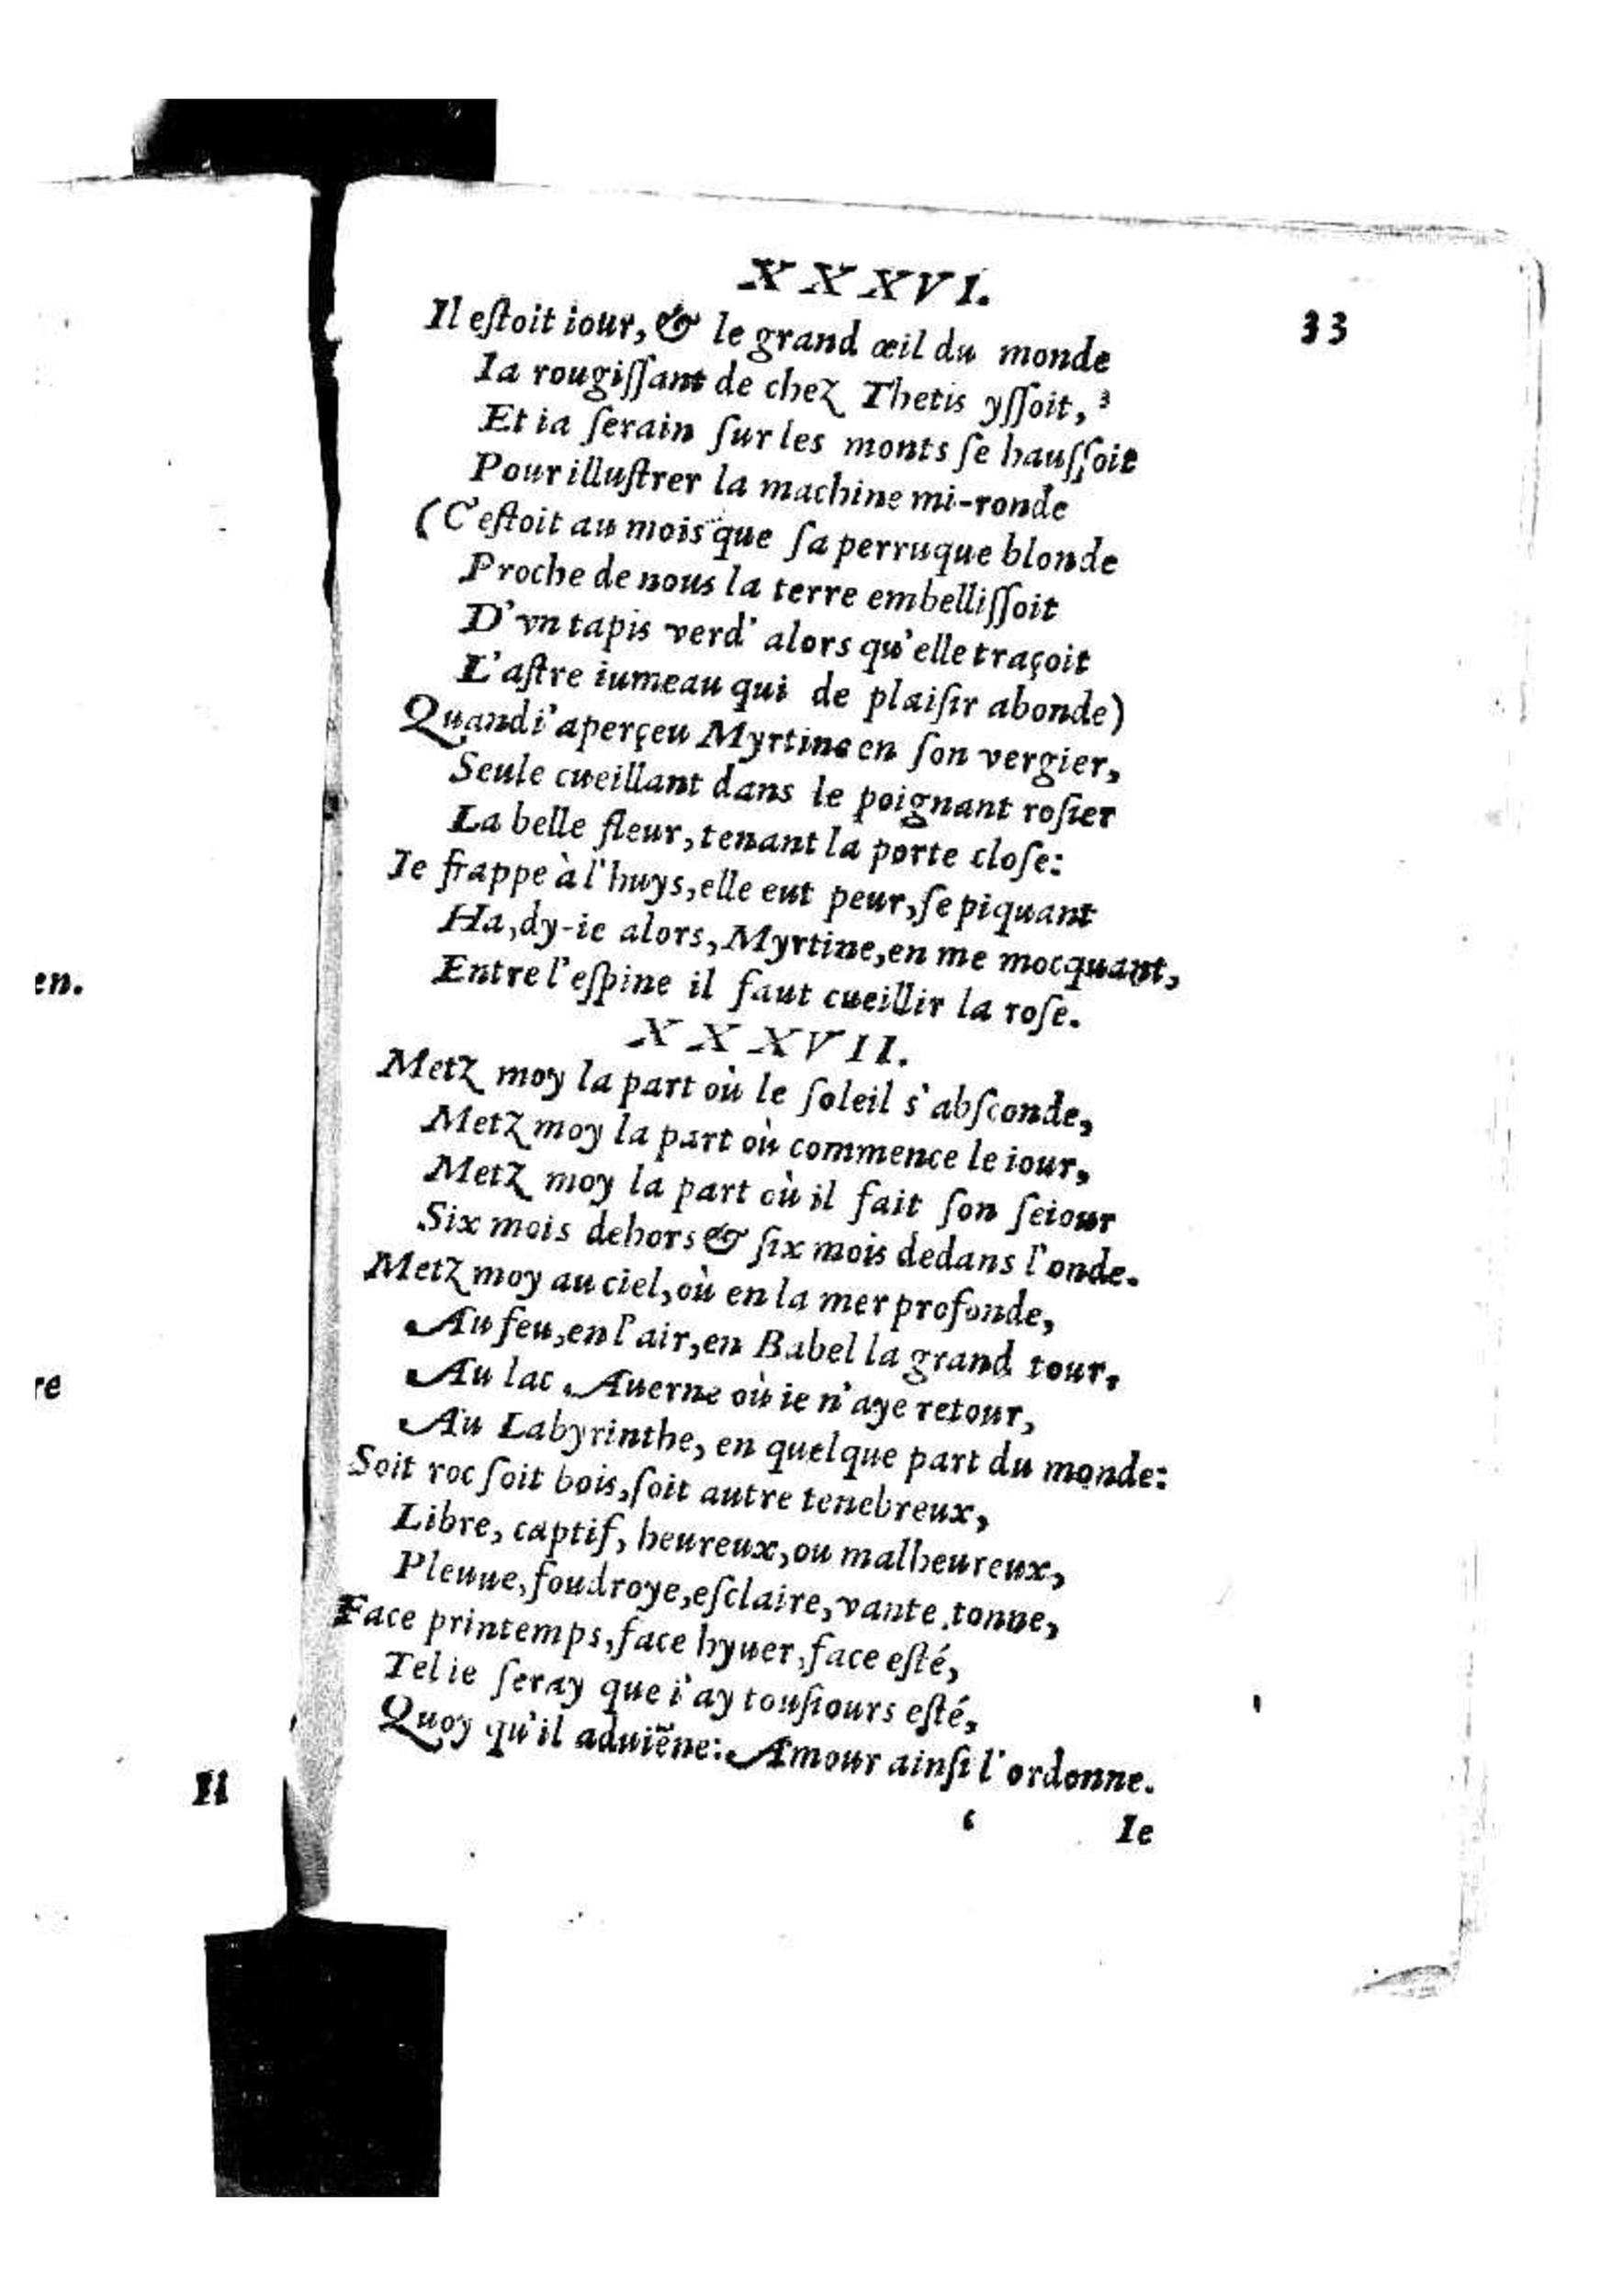 XXXVI.
33
Il eſtoit iour, & le grand œil du monde
Ia rougiſſant de chez Thetis yſſoit,
Et ia ſerain ſur les monts ſe hauſſoit
Pour illuſtrer la machine mi-ronde
(C'eſtoit au mois que ſa perruque blonde
Proche de nous la terre embelliſſoit
D'vn tapis verd' alors qu'elle traçoit
L'aſtre iumeau qui de plaiſir abonde)
Quand i'aperçeu Myrtine en ſon vergier,
Seule cueillant dans le poignant roſier
La belle fleur, tenant la porte cloſe:
Ie frappe à l'huys, elle eut peur, ſe piquant
Ha, dy-ie alors, Myrtine, en me mocquant,
Entre l'eſpine il faut cueillir la roſe.
XXXVII.
Metz moy la part où le ſoleil s'abſconde,
Metz moy la part où commence le iour,
Metz moy la part où il fait ſon ſeiour
Six mois dehors & ſix mois dedans l'onde.
Metz moy au ciel, où en la mer profonde,
Au feu, en l'air, en Babel la grand tour,
Au lac Auerne où ie n'aye retour,
Au Labyrinthe, en quelque part du monde:
Soit roc ſoit bois, ſoit autre tenebreux,
Libre, captif, heureux, ou malheureux,
Pleuue, foudroye, eſclaire, vante, tonne,
Face printemps, face hyuer, face eſté,
Tel ie ſeray que i'ay touſiours eſté,
Quoy qu'il aduiēne: Amour ainſi l'ordonne.
Ie
en.
re
Il